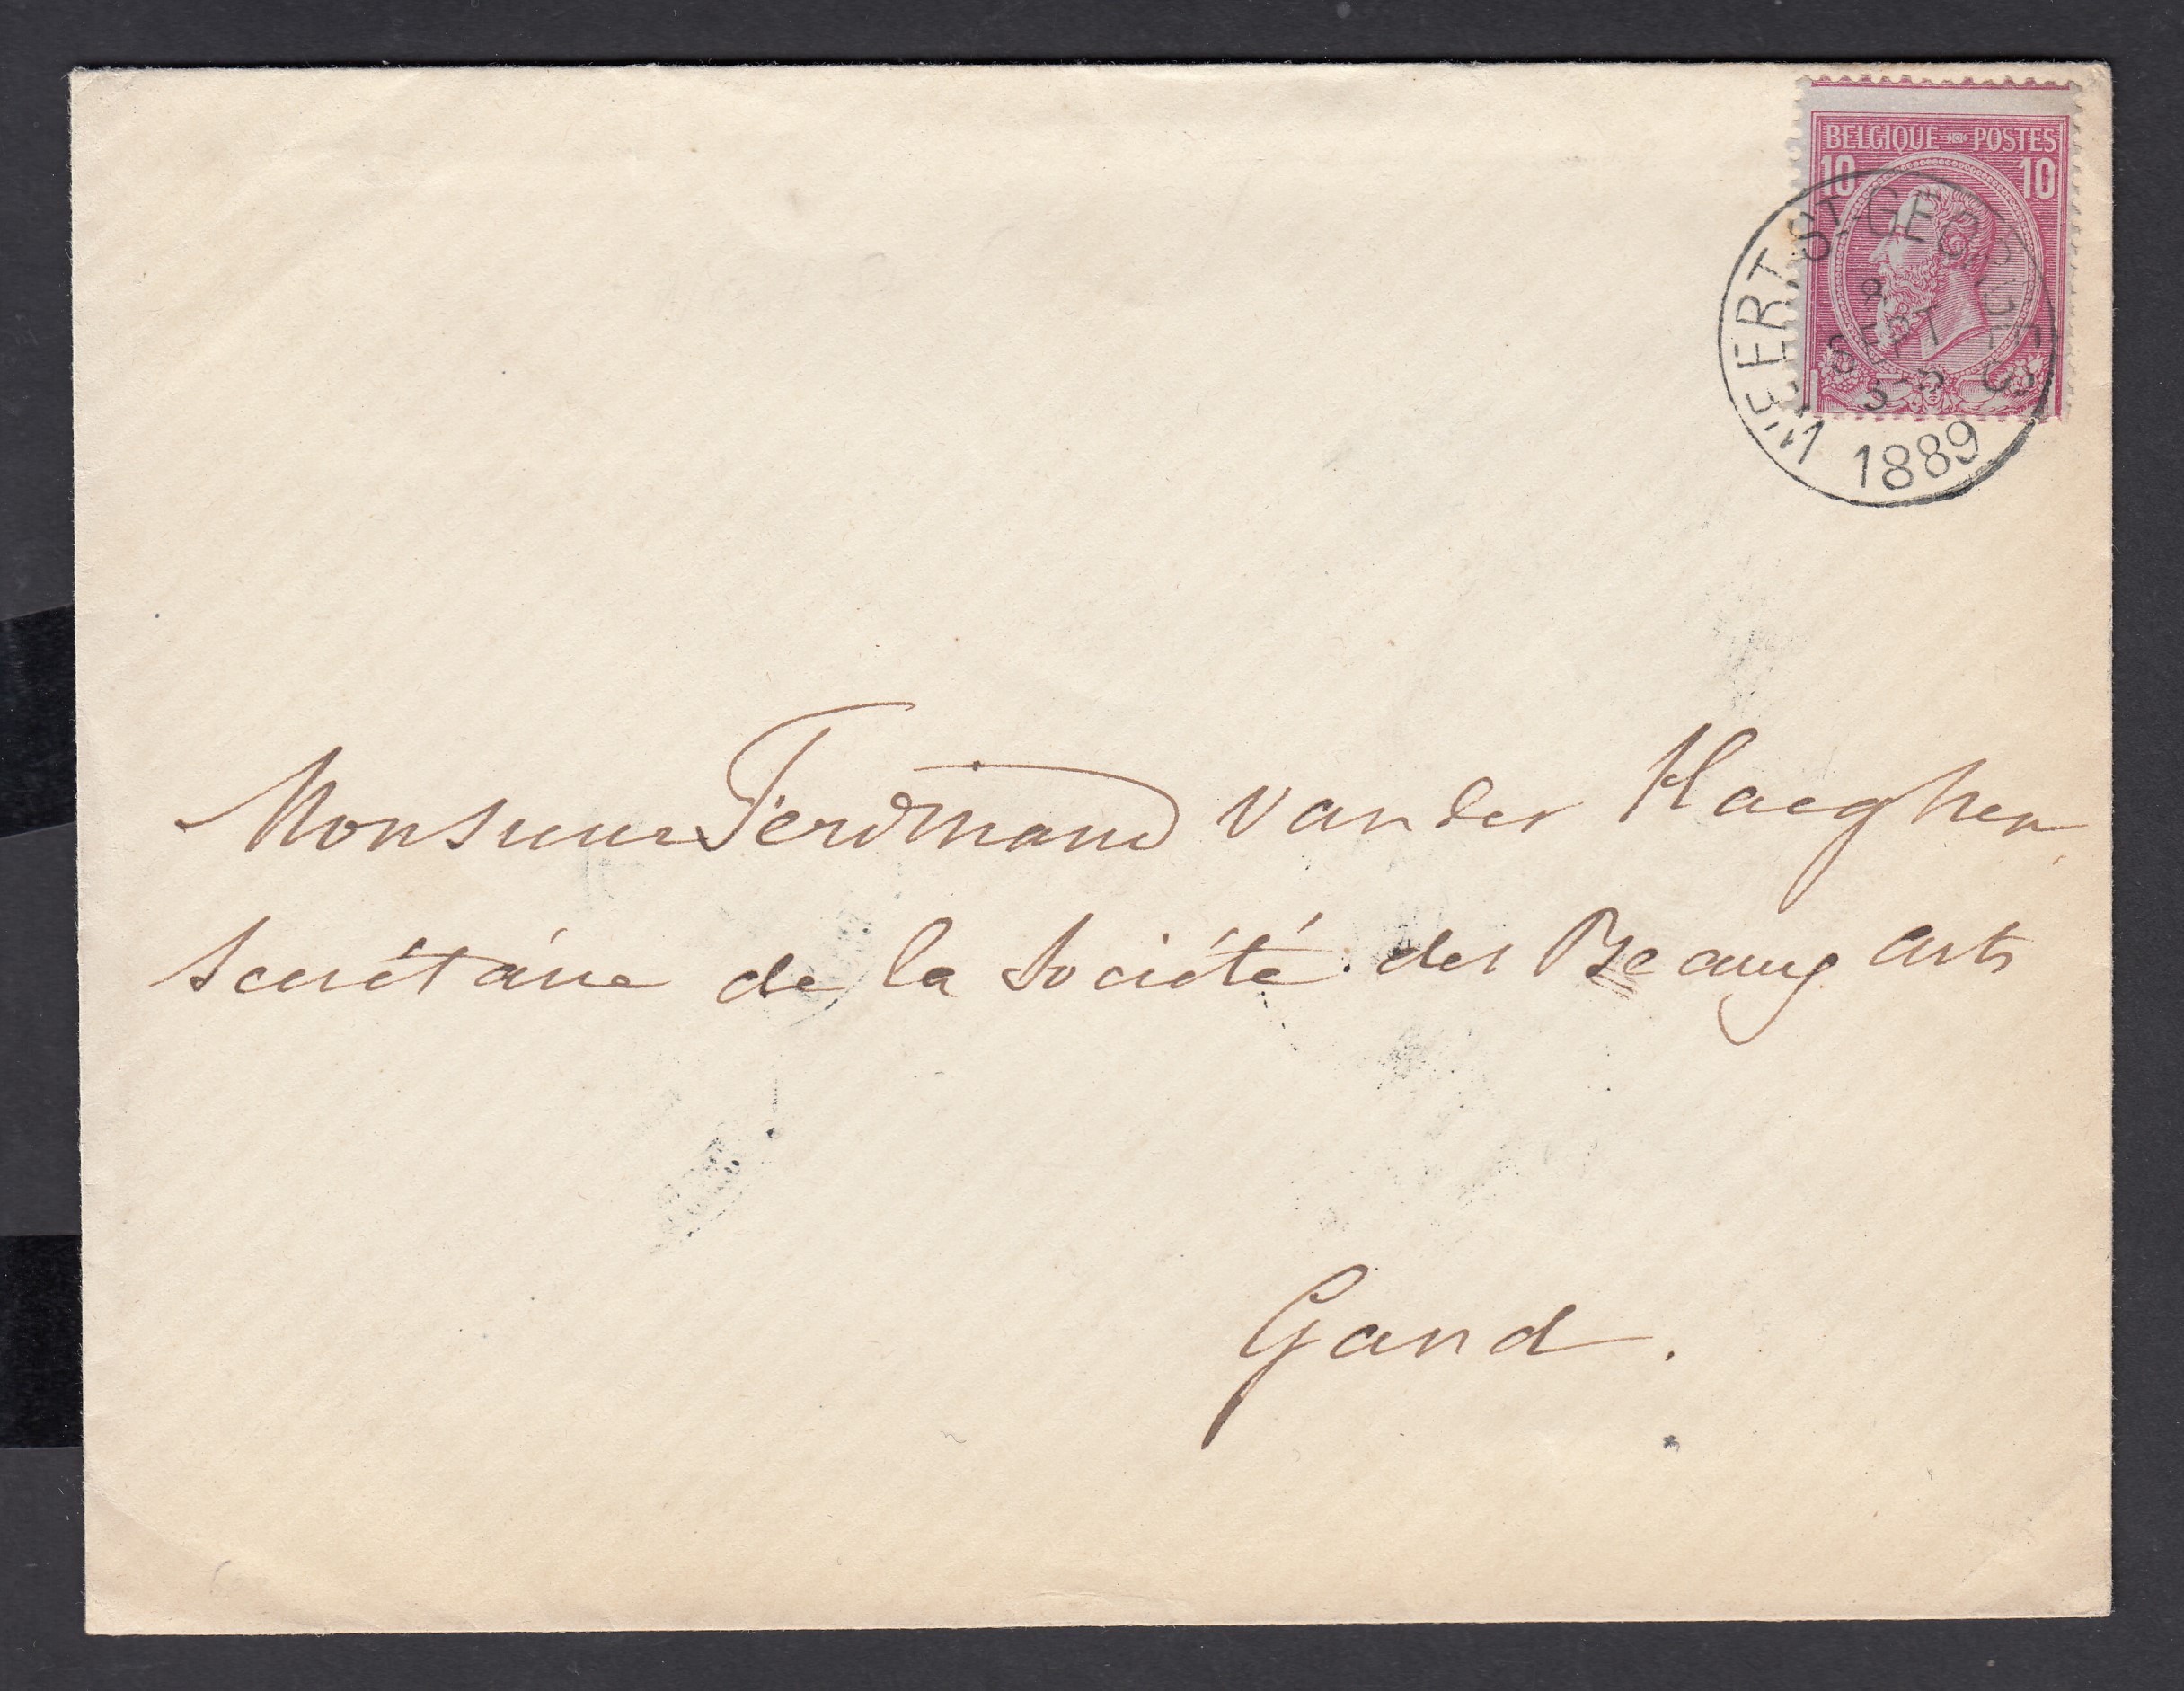 BELGIQUE POSTES
10 10
WEERT-ST-GEORGES
8
SEPT
3-S
1889
Monsieur Ferdinand Vander Haeghen
secrétaire de la Société des Beaux arts
Gand.